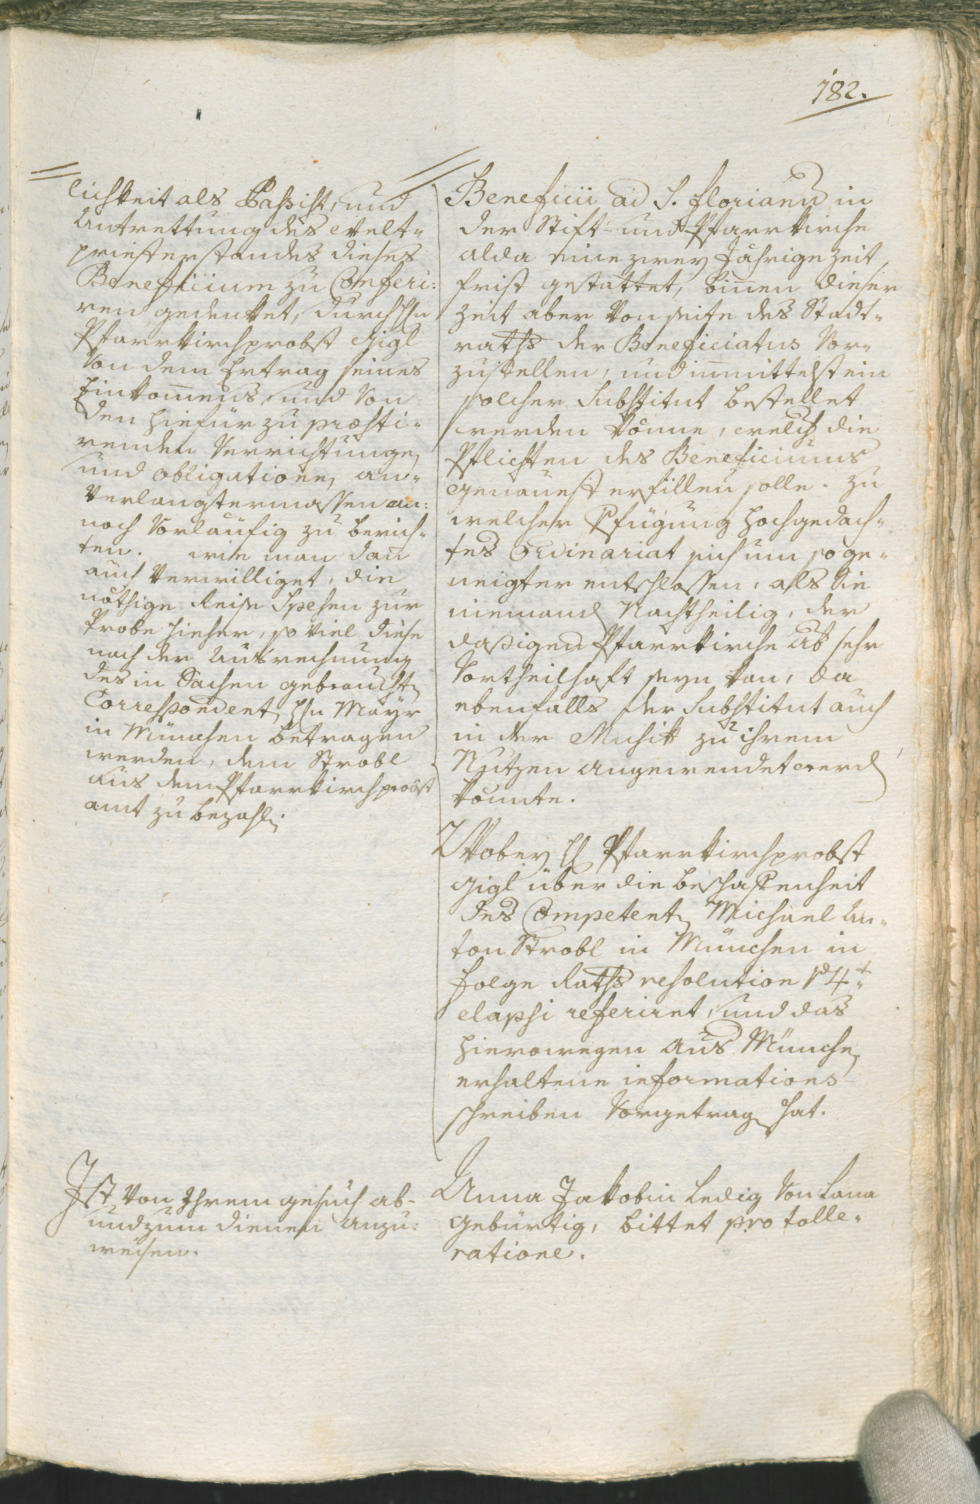 182.
lichkeit als Bassist, und
Antrettung des Welt-
priesterstandes dieses
Beneficium zu Conferi:
ren gedenket, durch Hn
Pfarrkirchprobst Gigl
Von dem Ertrag seines
Einkom̄ens, und Von
den hiefür zu præsti-
renden Verrichtungen
und obligationen an-
Verlangtermassen an:
noch Vorläufig zu berich-
ten. wie man dan̄
auch Verwilliget, die
nöthige Reise Spesen zur
Probe hieher, so viel diese
nach der Ausrechnung
des in Sachen gebrauchten
Correspondenten Hn Mayr
in München betragen
werden, dem Strobl
aus dem Pfarrkirchprobst
amt zu bezahlen.
Ist Von Ihrem gesuch ab-
und zum dienen anzu:
weisen.
Beneficii ad S. Florianum in
der Stift- und Pfarrkirche
alda eine zwey Jährige Zeit
frist gestattet, bin̄en dieser
Zeit aber Von seite des Stadt-
raths der Beneficiatus Vor-
zustellen, und in̄mittelst ein
solcher Substitut bestellet
werden kön̄e, welch die
Pflichten des Beneficiums
genauest erfüllen solle. Zu
welcher Pfügung hochgedach-
tes Ordinariat sich um so ge-
neigter entschlossen, als sie
niemand Nachtheilig, der
dasigen Pfarrkirche ab sehr
Vortheilhaft seyn kan, da
ebenfalls der Substitut auch
in der Musik zu ihrem
Nutzen angewendet werden
kön̄te.
Wobey H Pfarrkirchprobst
Gigl über die beschaffenheit
des Competenten Michael An-
ton Strobl in München in
folge Raths resolution 14t
elapsi referiret, und das
hierowegen aus München
erhaltene informations
schreiben Vorgetragen hat.
Anna Jakobin ledig Von Lana
gebürtig, bittet pro tolle-
ratione.